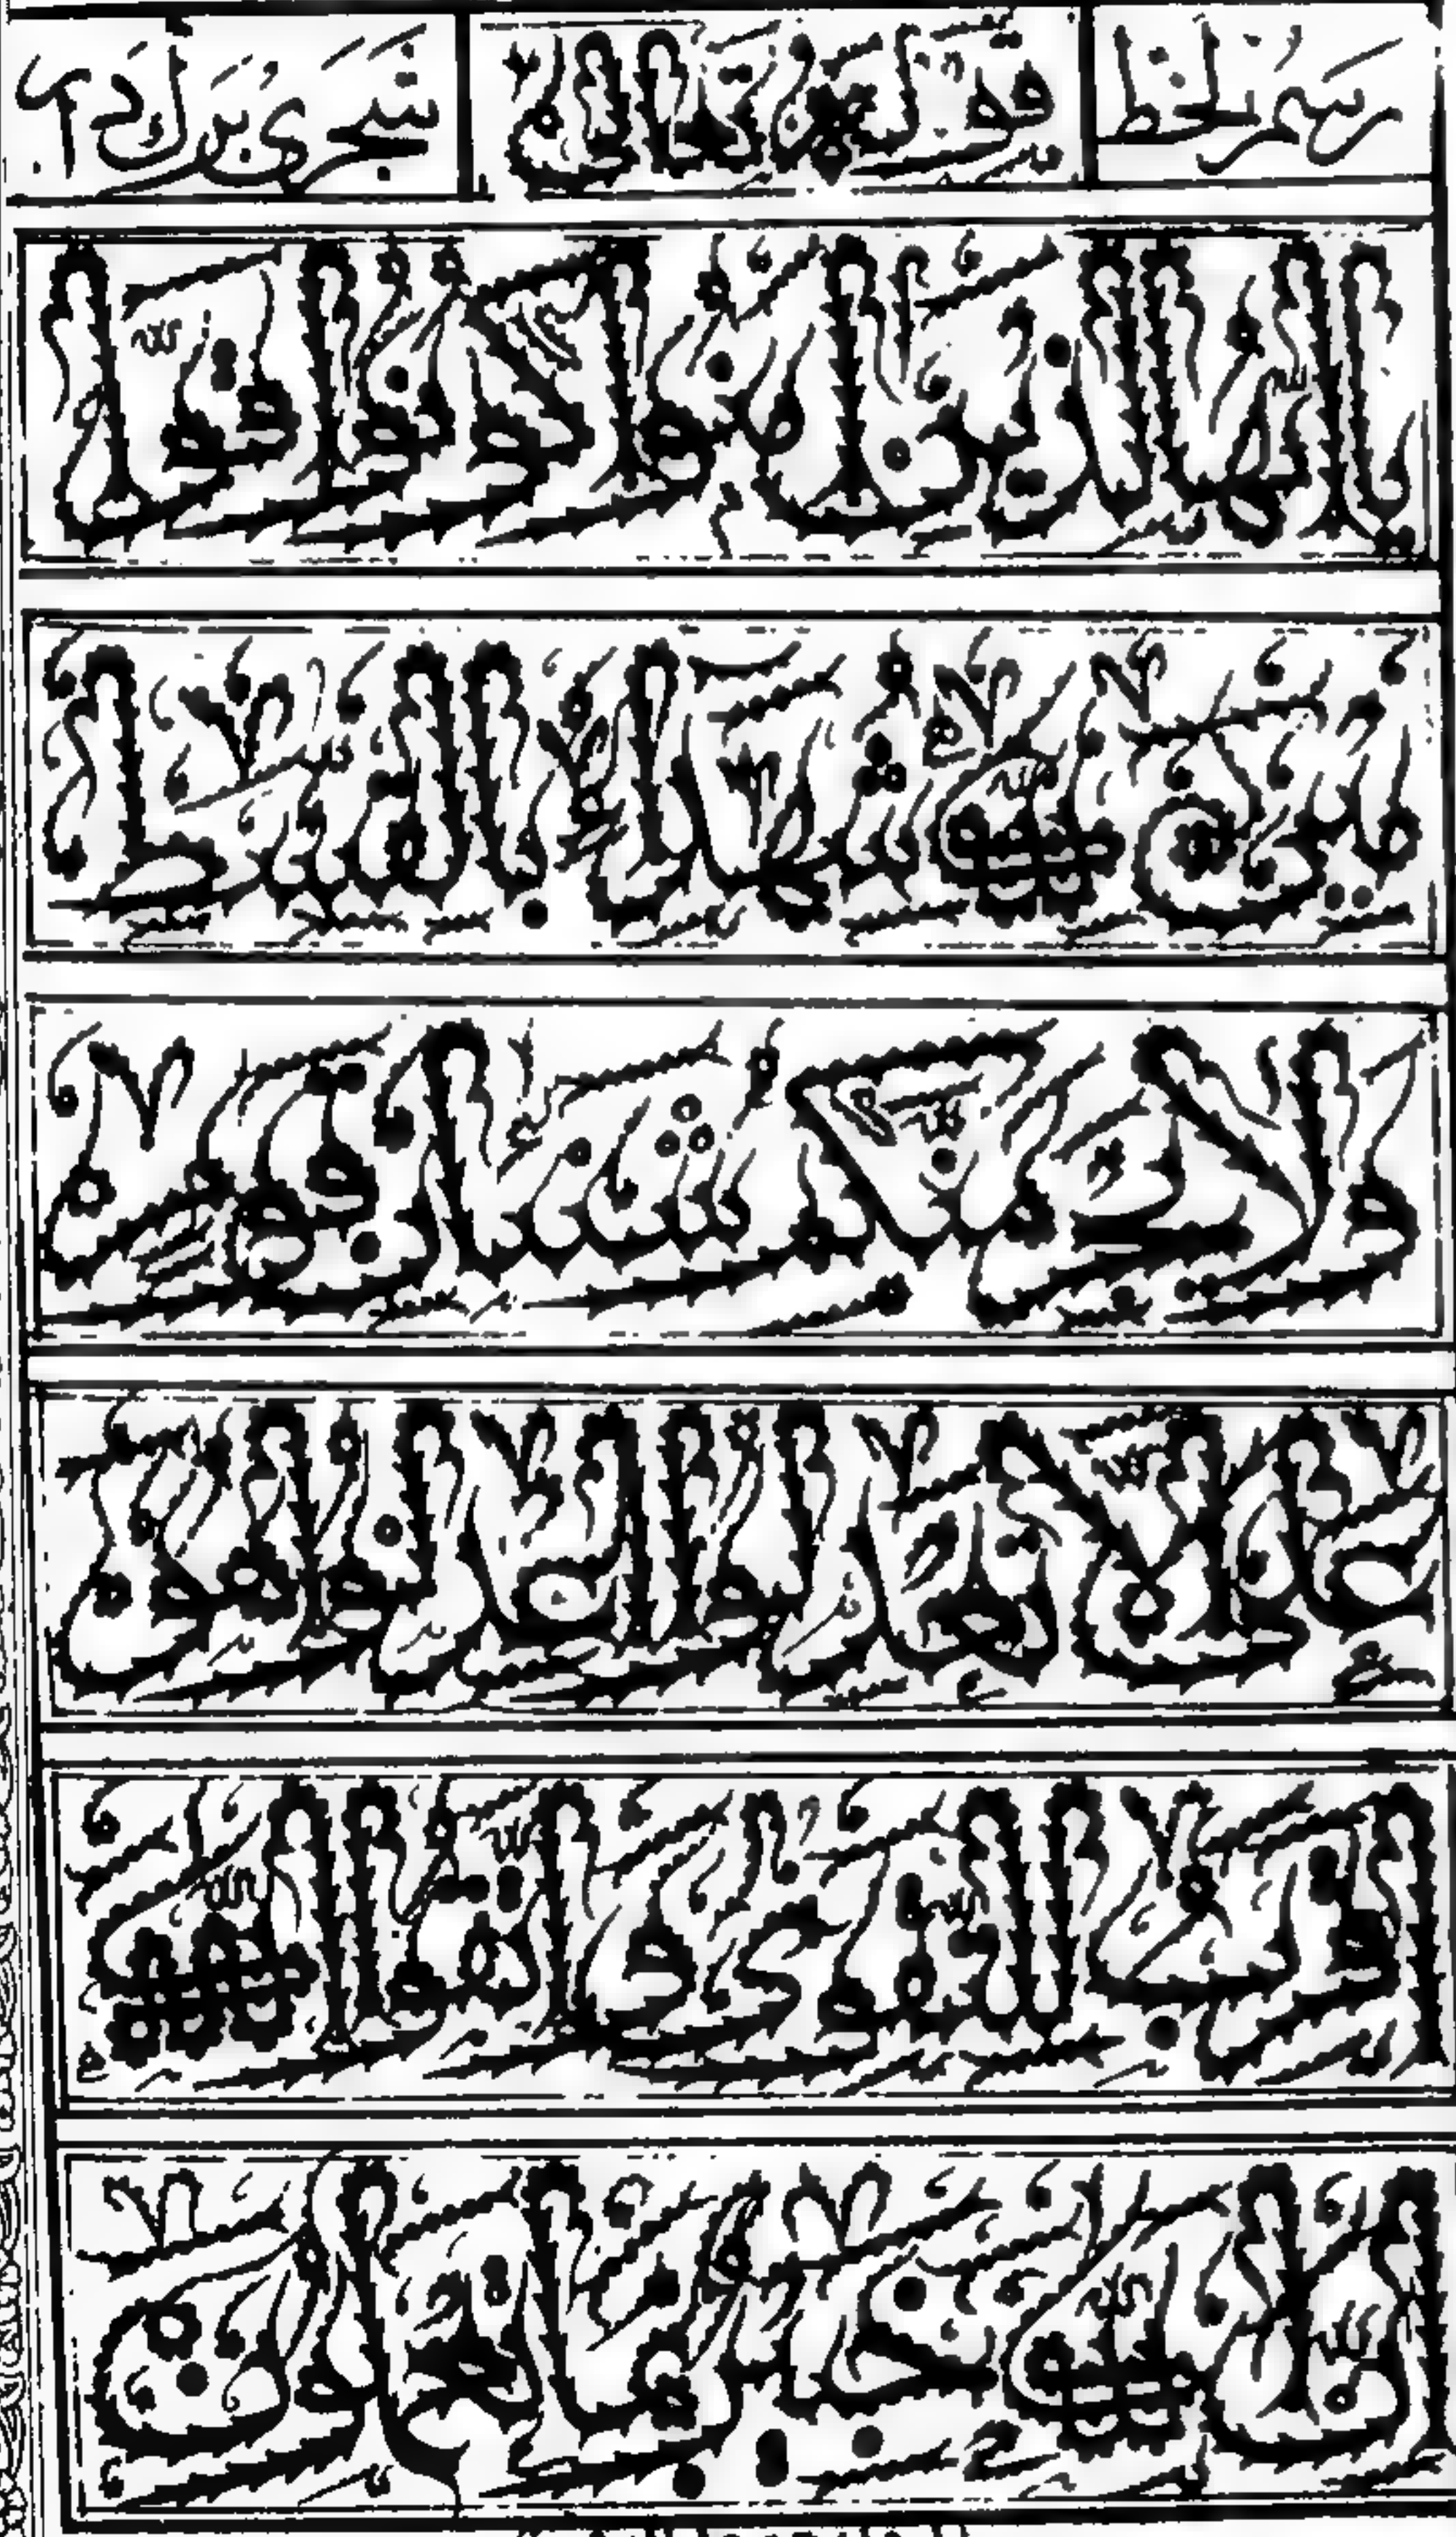 رسم الخط قوله تعالى شجری برك دار
يَا أَيُّهَا الَّذِينَ آمَنُوا كُونُوا قَوَّا
مِينَ لِلَّهِ شُهَدَاءَ بِالْقِسْطِ
وَلَا يَجْرِمَنَّكُمْ شَنَآنُ قَوْمٍ
عَلَى أَلَّا تَعْدِلُوا اعْدِلُوا هُوَ
أَقْرَبُ لِلتَّقْوَى وَاتَّقُوا اللَّهَ
إِنَّ اللَّهَ خَبِيرٌ بِمَا تَعْمَلُونَ